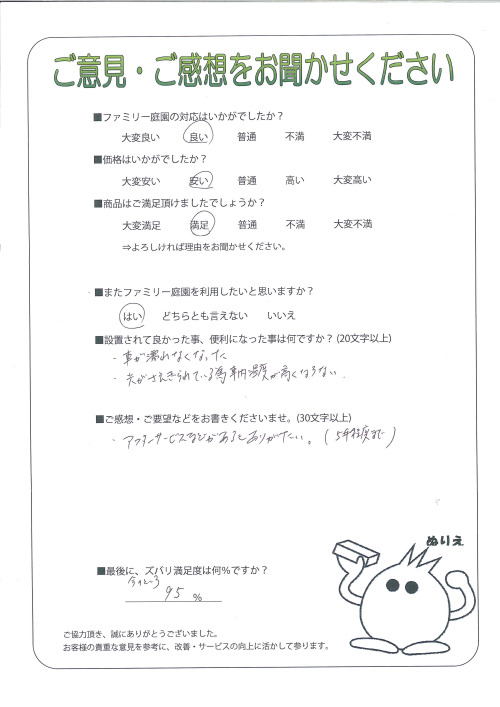 ご意見・ご感想をお聞かせください
■ファミリー庭園の対応はいかがでしたか？
大変良い　良い　普通　不満　大変不満
■価格はいかがでしたか？
大変安い　安い　普通　高い　大変高い
■商品はご満足頂けましたでしょうか？
大変満足　満足　普通　不満　大変不満
⇒よろしければ理由をお聞かせください。
■またファミリー庭園を利用したいと思いますか？
はい　どちらとも言えない　いいえ
■設置されて良かった事、便利になった事は何ですか？(20文字以上)
・車が濡れなくなった
・光がさえぎられている為車内温度が高くならない
■ご感想・ご要望などをお書きくださいませ。(30文字以上)
・アフターサービスなどがあるとありがたい。(5年程度まで)
ぬりえ
■最後に、ズバリ満足度は何％ですか？
今のところ
95 %
ご協力頂き、誠にありがとうございました。
お客様の貴重な意見を参考に、改善・サービスの向上に活かして参ります。